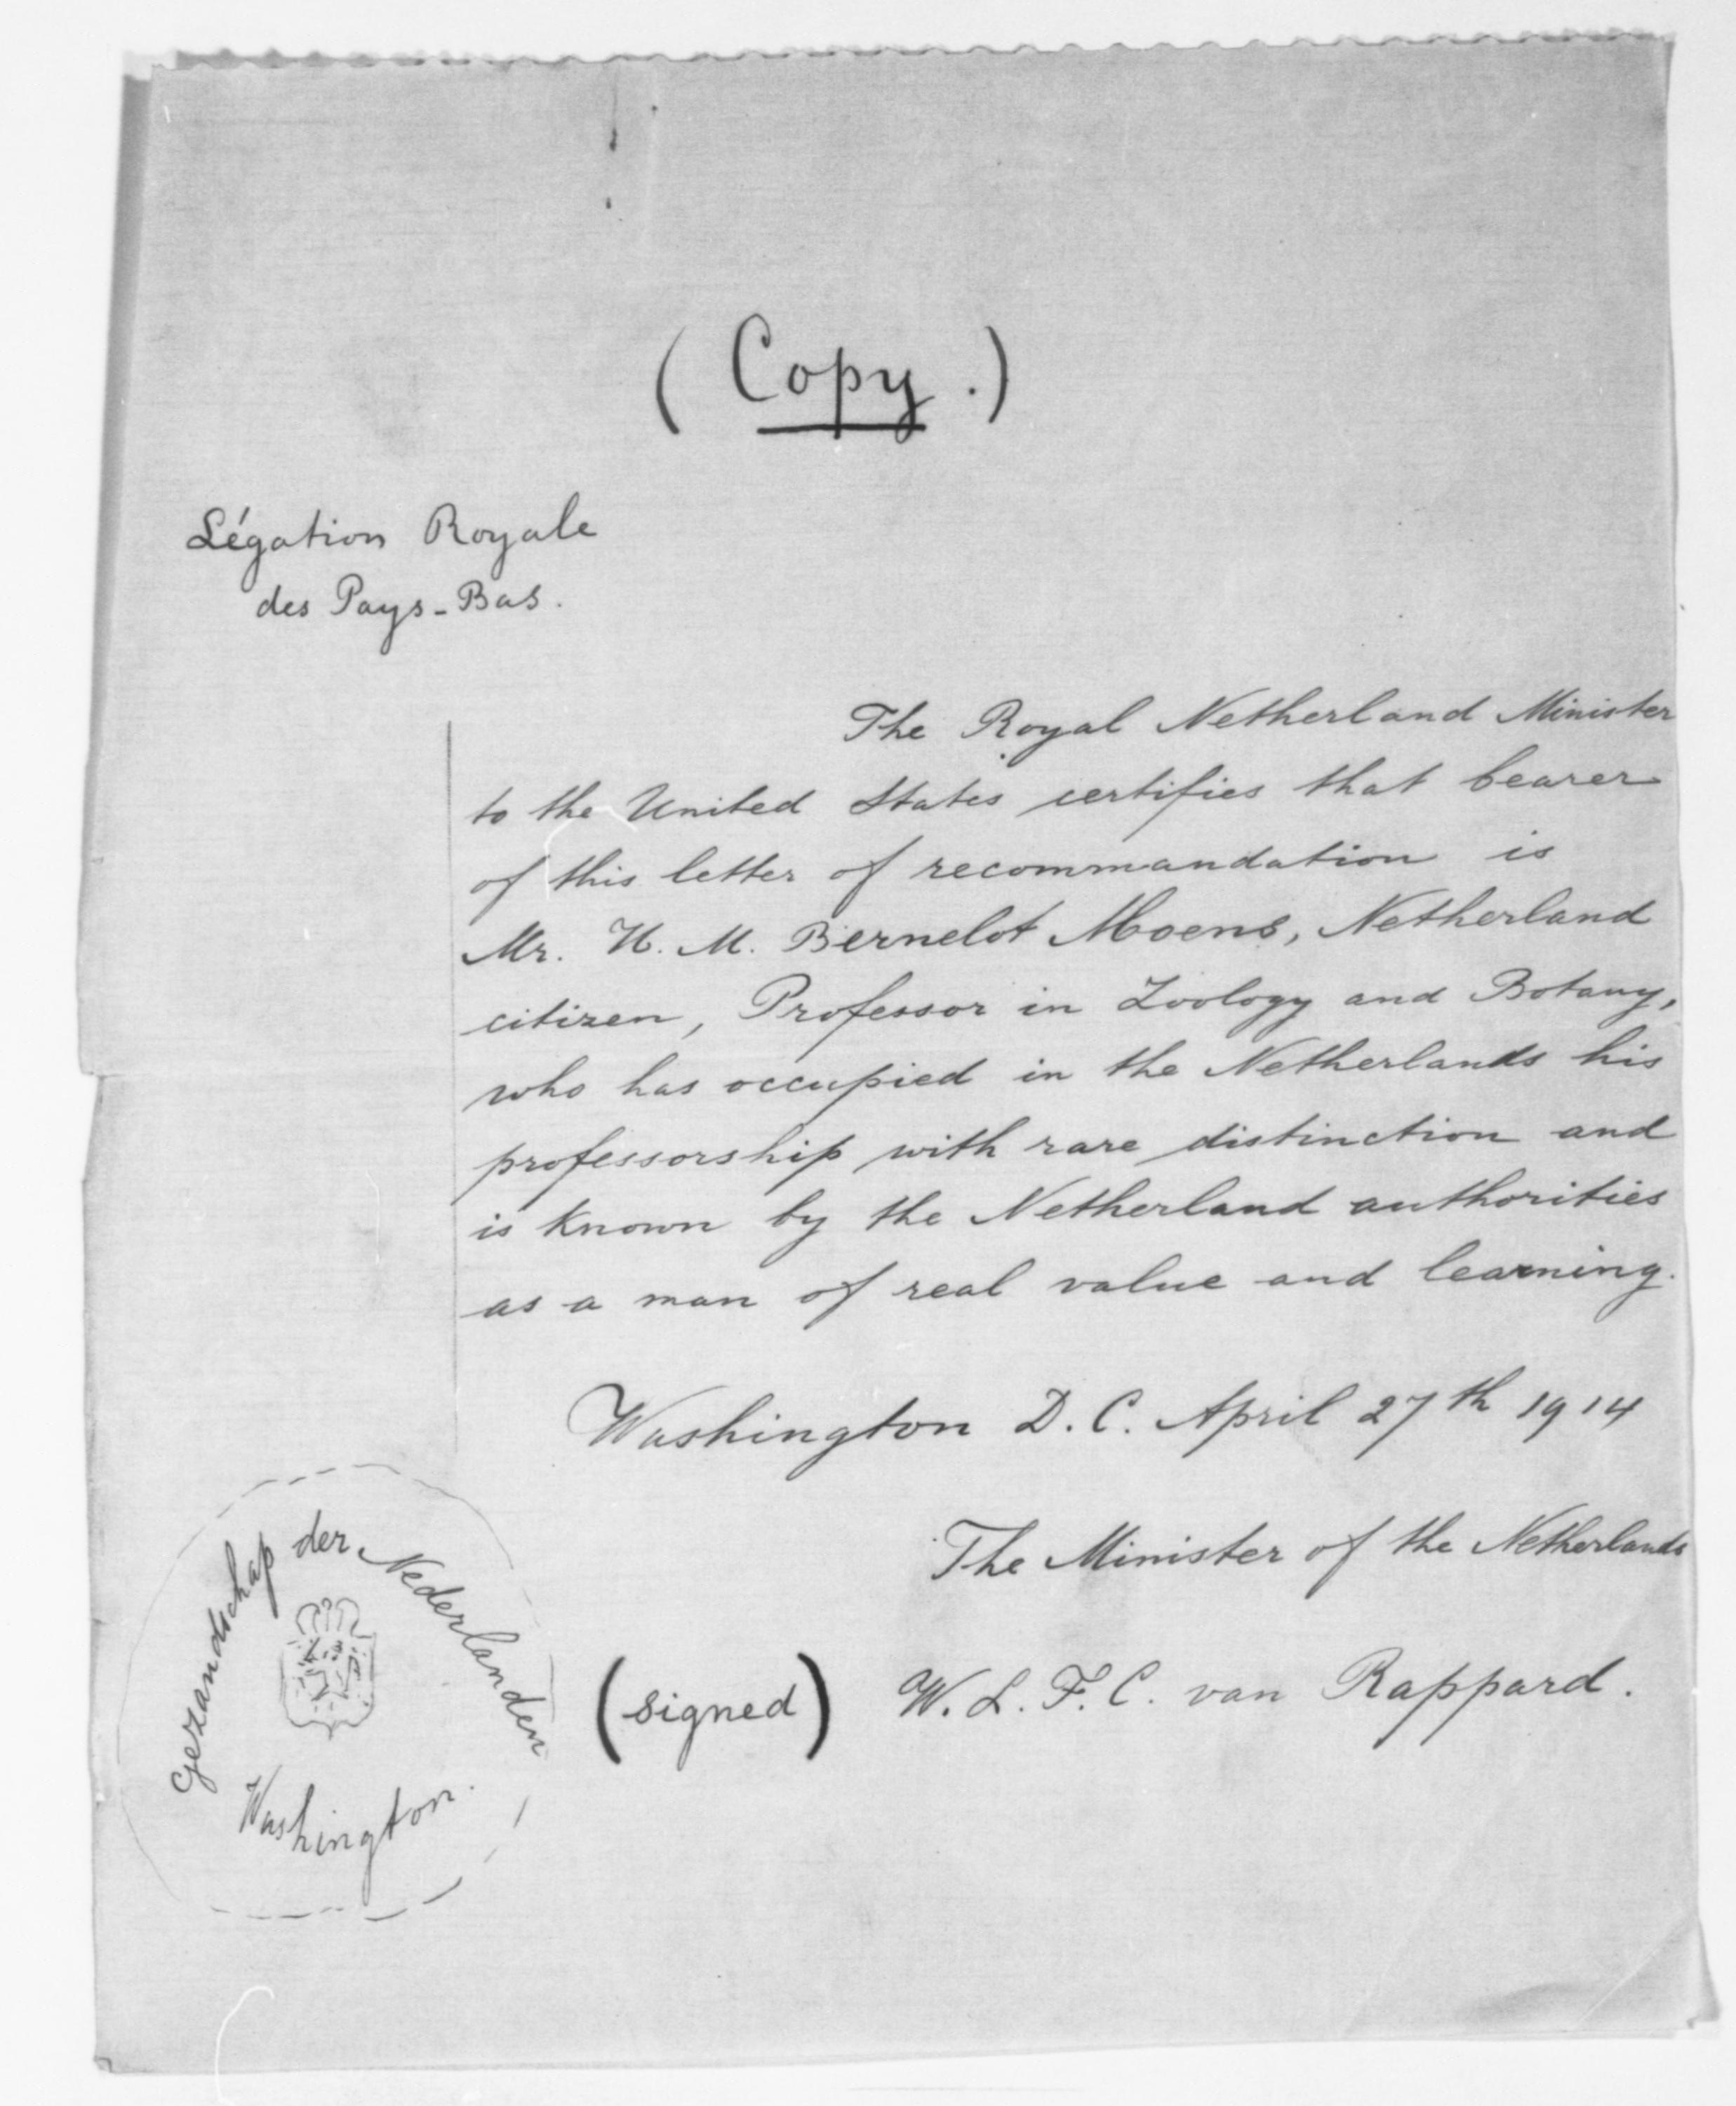 ( Copy . )
Légation Royale
des Pays-Bas.
The Royal Netherland Minister
to the United States certifies that bearer
of this letter of recommandation is
Mr. H. M. Bernelot Moens, Netherland
citizen, Professor in Zoology and Botany,
who has occupied in the Netherlands his
professorship with rare distinction and
is known by the Netherland authorities
as a man of real value and learning.
Washington D. C. April 27th 1914
The Minister of the Netherlands
(signed) W. L. F. C. van Rappard.
Gezandschap der Nederlanden
Washington.